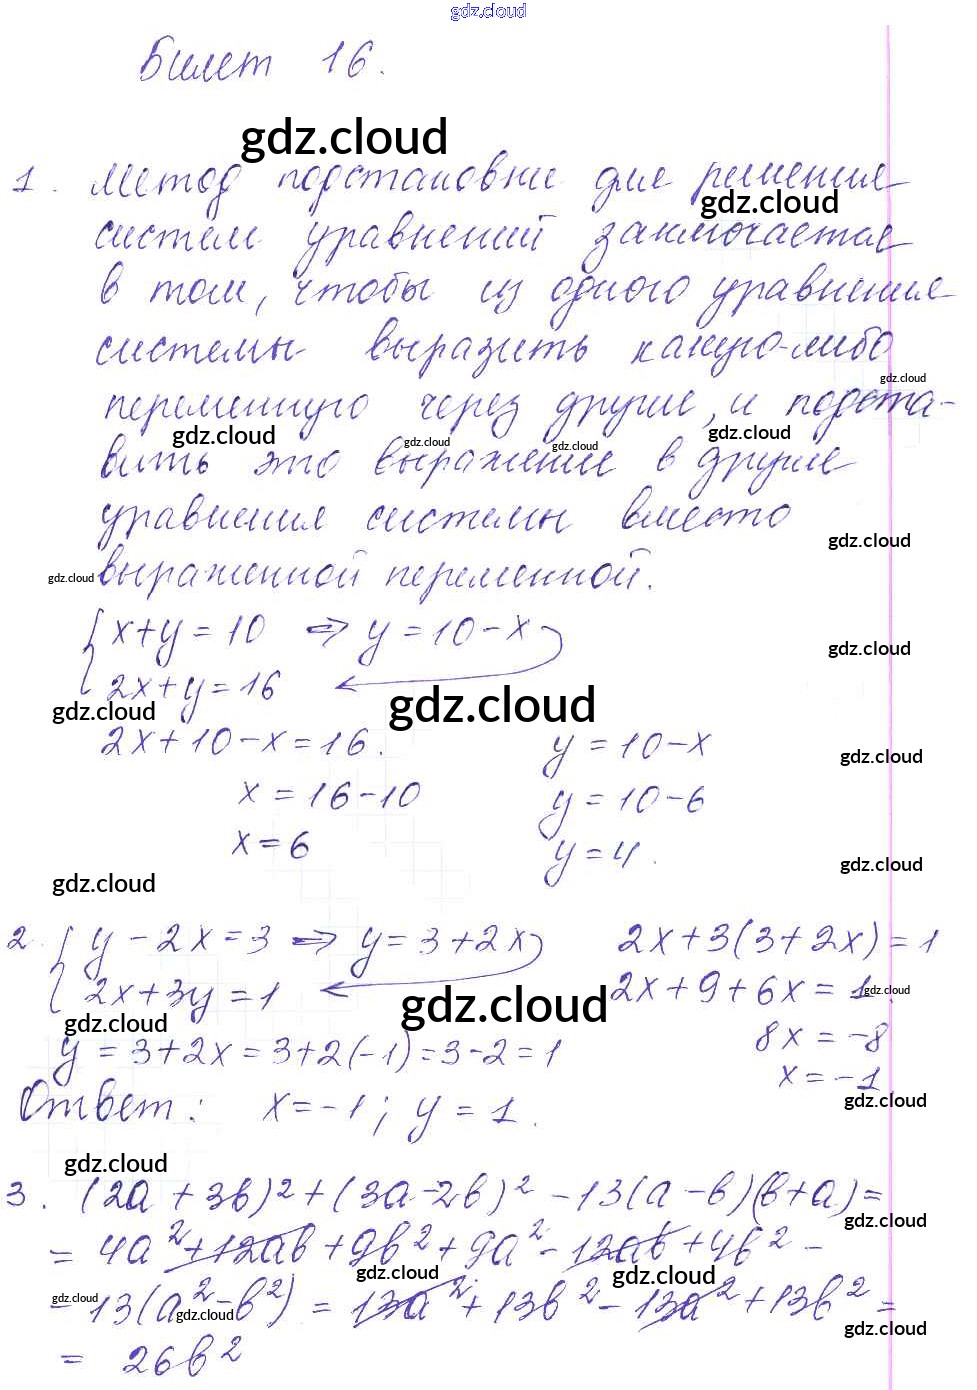 gdz.cloud
Билет 16.
gdz.cloud
1. Метод подстановки для решения
gdz.cloud
систем уравнений заключается
в том, чтобы из одного уравнения
системы выразить какую-либо
gdz.cloud
переменную через другие, и подста-
gdz.cloud gdz.cloud gdz.cloud gdz.cloud
вить это выражение в другие
уравнения системы вместо
gdz.cloud
gdz.cloud
выраженной переменной.
{ x+y=10 => y=10-x
gdz.cloud
2x+y=16
gdz.cloud gdz.cloud
2x+10-x=16. y=10-x
gdz.cloud
x=16-10 y=10-6
x=6 y=4.
gdz.cloud
gdz.cloud
2. { y-2x=3 => y=3+2x 2x+3(3+2x)=1
2x+3y=1 2x+9+6x=1
gdz.cloud gdz.cloud gdz.cloud
y=3+2x=3+2(-1)=3-2=1 8x=-8
x=-1
gdz.cloud
Ответ: x=-1; y=1.
gdz.cloud
3. (2a+3b)²+(3a-2b)²-13(a-b)(b+a)=
gdz.cloud
=4a²+12ab+9b²+9a²-12ab+4b²-
gdz.cloud gdz.cloud
gdz.cloud gdz.cloud
-13(a²-b²)=13a²+13b²-13a²+13b²=
gdz.cloud
=26b²